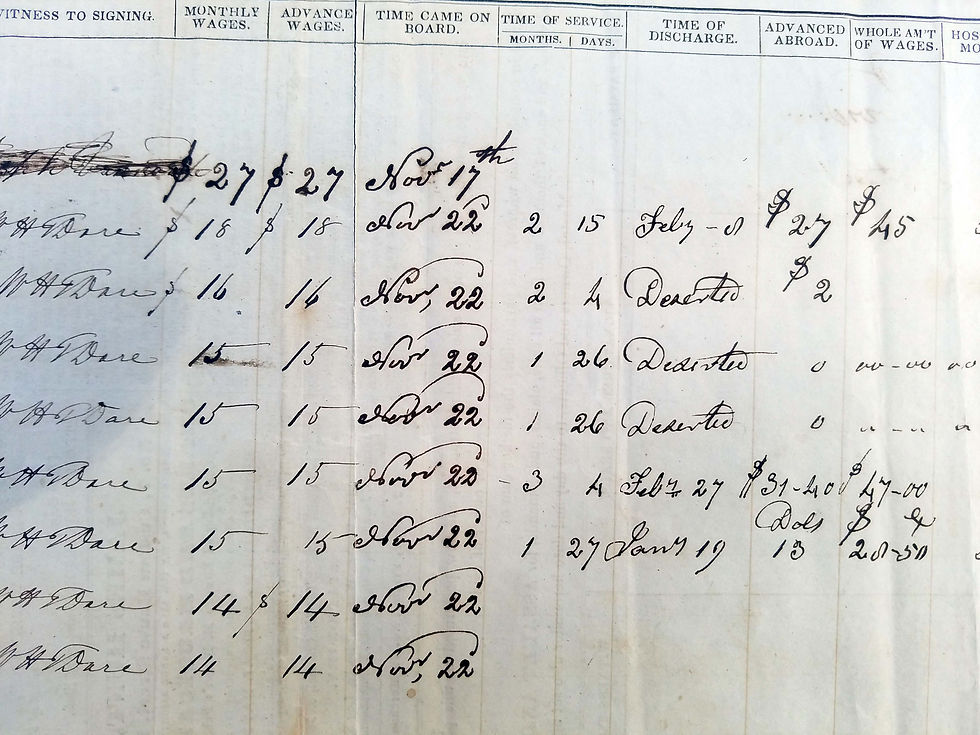 WITNESS TO SIGNING. MONTHLY WAGES. ADVANCE WAGES. TIME CAME ON BOARD. TIME OF SERVICE. MONTHS. DAYS. TIME OF DISCHARGE. ADVANCED ABROAD. WHOLE AM'T OF WAGES. HOS MO
$ 27 $ 27 Novr 17th
W H Dare $ 18 $ 18 Novr 22 2 15 Feby - 8 $27 $45
W H Dare $ 16 16 Novr, 22 2 4 Deserted $2
W H Dare 15 15 Novr 22 1 26 Deserted 0 00-00 00
W H Dare 15 15 Novr 22 1 26 Deserted 0 " - "
W H Dare 15 15 Novr 22 - 3 4 Feby 27 $31-40 $47-00
Dols $ c
W H Dare 15 15 Novr 22 1 27 Jany 19 13 28-50
W H Dare 14 $ 14 Novr 22
W H Dare 14 14 Novr, 22